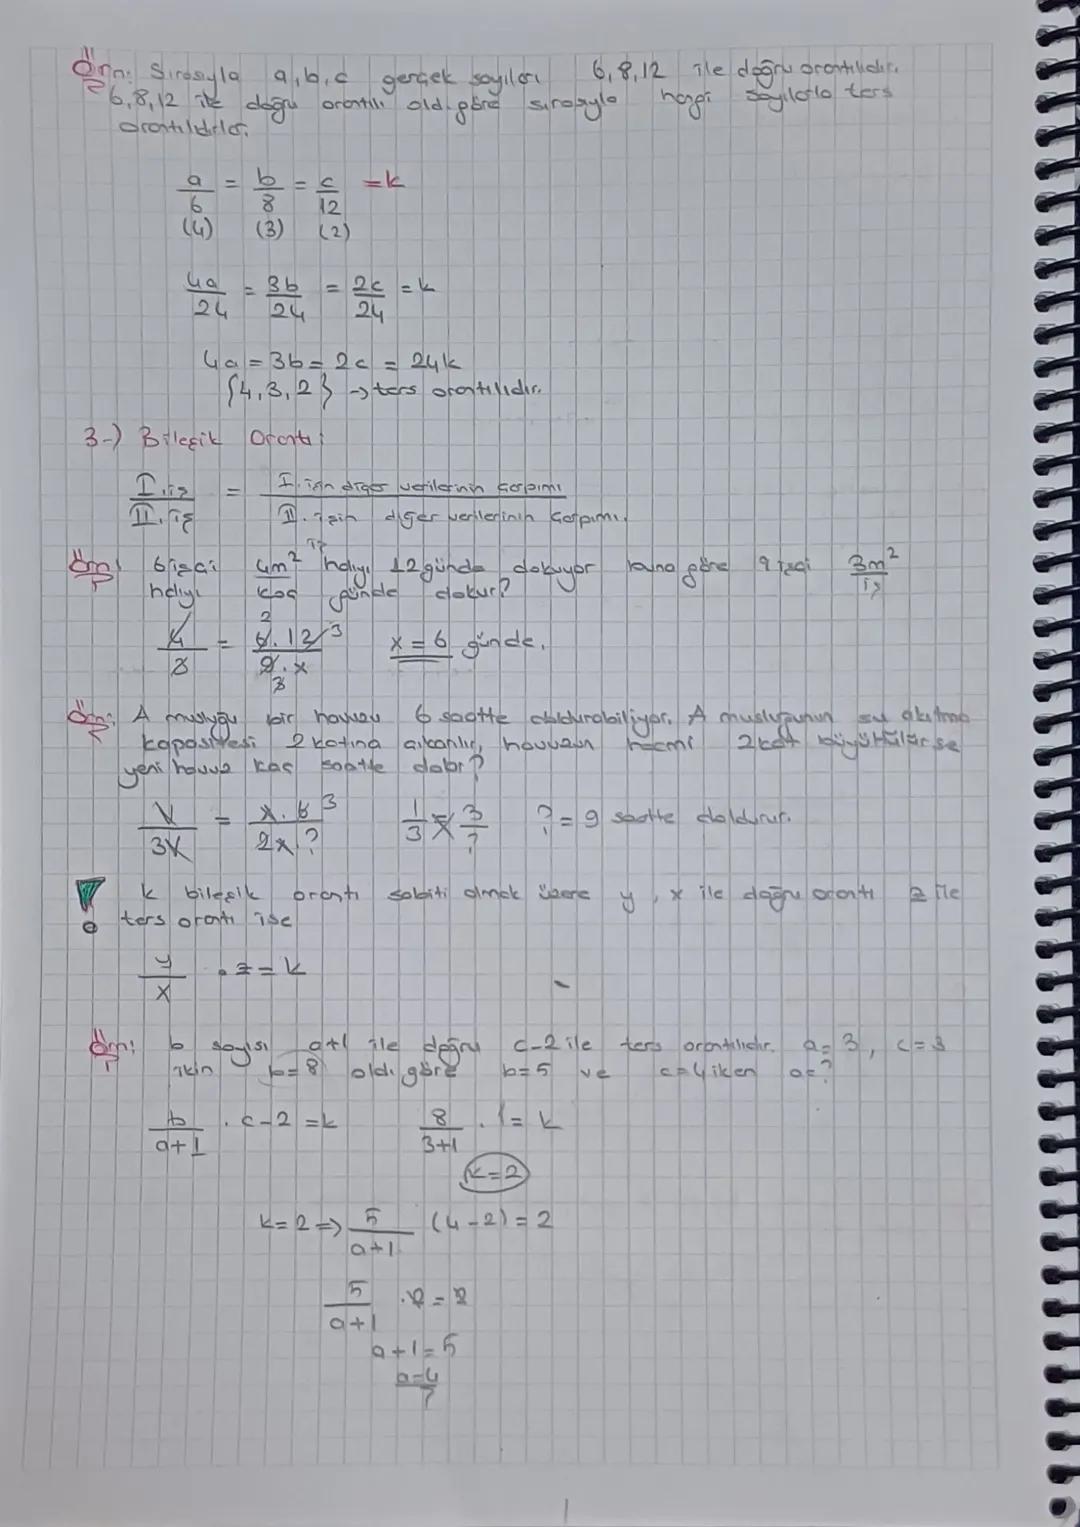 Örn: Sırasıyla a,b,c gerçek sayıları 6,8,12 ile doğru orantılıdır.
6,8,12 ile doğru orantılı old. göre sırasıyla hangi sayılarla ters
orantılıdırlar.
a/6 = b/8 = c/12 = k
(4) (3) (2)
4a/24 = 3b/24 = 2c/24 = k
4a = 3b = 2c = 24k
{4,3,2} → ters orantılıdır.
3-) Bileşik Orantı:
I. iş / II. iş = I. işin diğer verilerinin çarpımı / II. işin diğer verilerinin çarpımı.
Örn: 6 işçi 4m² halıyı 12 günde dokuyor buna göre 9 işçi 3m²
iş iş
halıyı kaç günde dokur?
4/3 = 6.12/9.x 2 3 3 x = 6 günde.
Örn: A musluğu bir havuzu 6 saatte doldurabiliyor. A musluğunun su akıtma
kapasitesi 2 katına çıkarılır, havuzun hacmi 2 kat büyütülürse
yeni havuz kaç saatte dolar?
V/3V = x.6/2x.? 3 1/3 = 3/? ? = 9 saatte doldurur.
k bileşik orantı sabiti olmak üzere y, x ile doğru orantı z ile
ters orantı ise
y/x . z = k
Örn: b sayısı a+1 ile doğru c-2 ile ters orantılıdır. a=3, c=3
iken b=8 old. göre b=5 ve c=4 iken a=?
b/a+1 . c-2 = k 8/3+1 . 1 = k
k=2
k=2 => 5/a+1 (4-2) = 2
5/a+1 .2 = 2
a+1=5
a=4